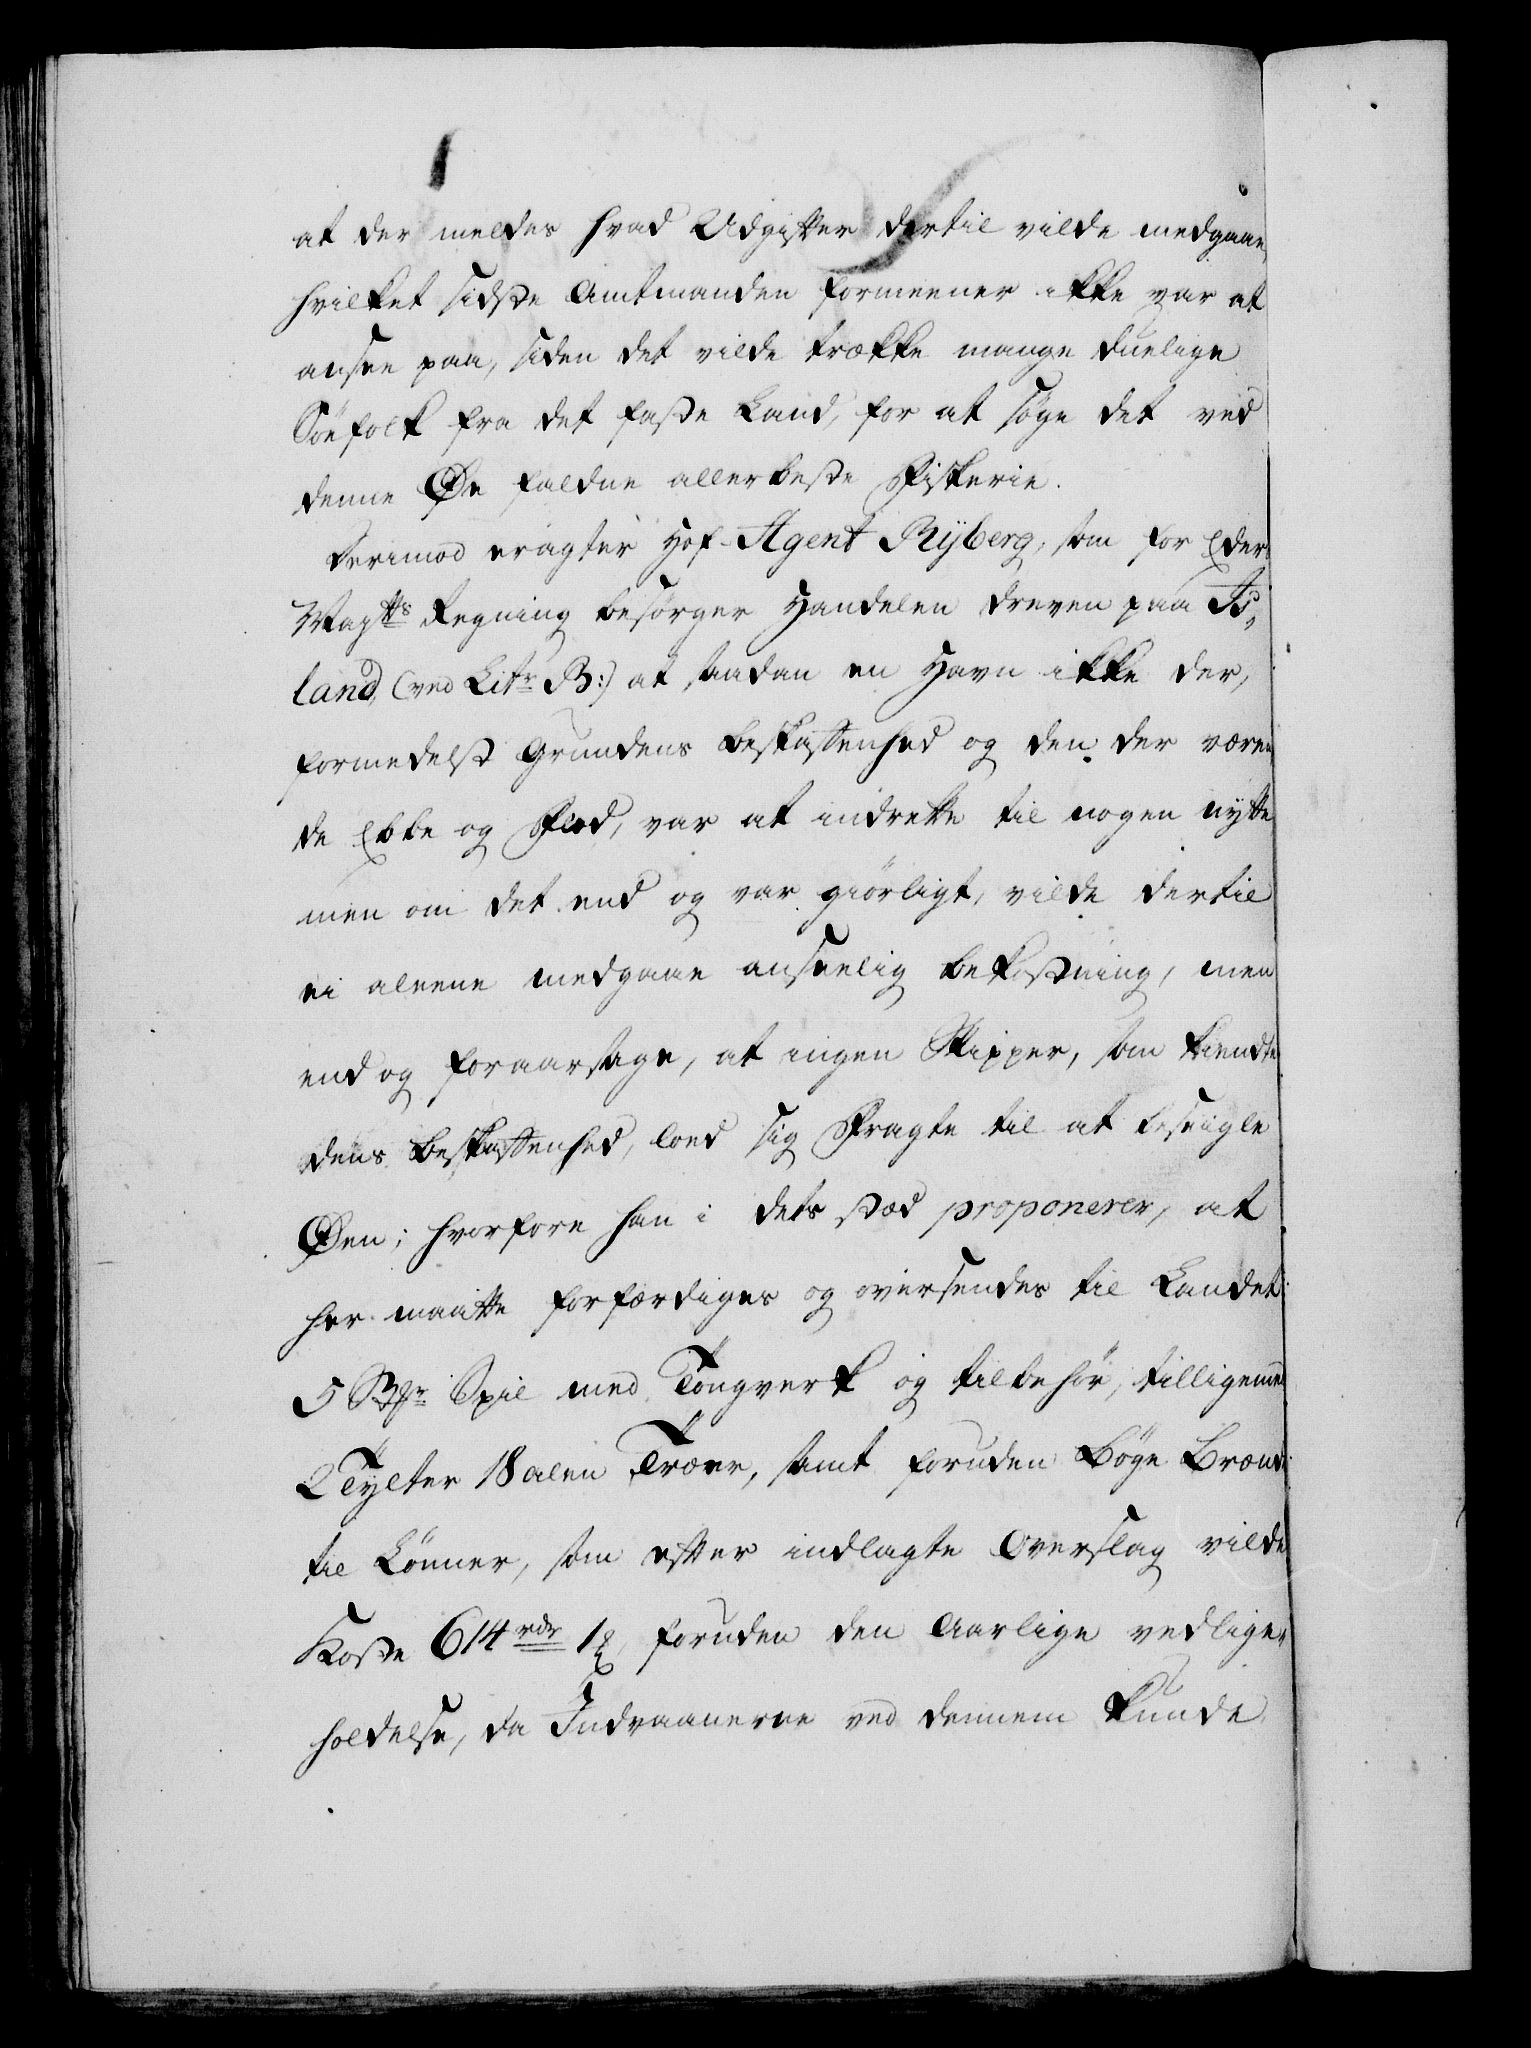 at der meldes hvad Udgifter dertil vilde medgaae,
hvilket sidste Amtmanden formeener ikke var at
ansee paa, siden det vilde trække mange duelige
Söefolk fra det faste Land, for at søge det ved
denne Øe faldne allerbeste Fiskerie.
Derimod eragter Hof-Agent Ryberg, som for Eders
Maytts Regning besørger Handelen dreven paa Is-
land, (ved Litr B:) at saadan en Havn ikke der,
formedelst Grundens beskaffenhed og den der væren
de Ebbe og Flod, var at indrette til nogen nytte
men om det end og var giørligt, vilde dertil
ei alene medgaae anseelig bekostning, men
end og foraarsage, at ingen Skipper, som kiendte
dens beskaffenhed, loed sig Fragte til at beseigle
Øen; hvorfore han i dets sted proponerer, at
her maatte forfærdiges og oversendes til Landet
5 Spil med Tougverk og tilbehør, tilligemed
2 Tylter 18 alen Træer, samt foruden Bøge Brænde
til Lönner, som efter indlagte Overslag vilde
Koste 614 rdr 1 ß, foruden den Aarlige vedlige-
holdelse, da Indvaanerne ved dennem kunde